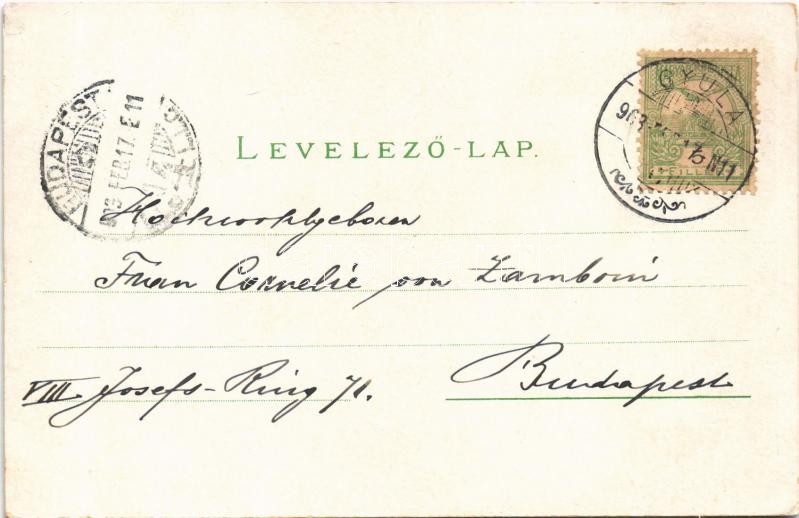 LEVELEZŐ-LAP.
BUDAPEST
903 FEB.17. E 11
GYULA
FILLÉR
Hochwohlgeboren
Frau Cornelie von Zamboni
VIII Josefs-Ring 71.
Budapest